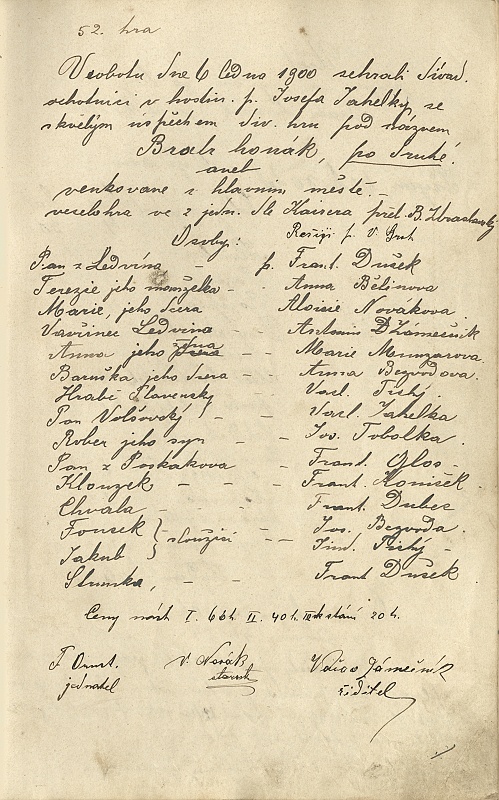 52. hra
V sobotu dne 6 ledna 1900 sehráli divad.
ochotníci v hostin. p. Josefa Jahelky se
skvělým úspěchem div. hru pod názvem
Bratr honák, po druhé.
aneb
venkované v hlavním městě. -
veselohra ve 2 jedn. dle Kaisera přel. B.
Osoby: Režíji p. V.
Pan z Ledvína - p. Frant. Dušek
Terezie jeho manželka - - Anna Bělinova
Marie, jeho dcera Aloisie Novákova
Vavřinec Ledvina - - Antonín Zámečník
Anna jeho žena - - Marie Munzarova
Baruška jeho dcera - - Anna Bezvodova.
Hrabě Slavenský - - Václ. Tichý.
Pan Volšovský - - Václ. Jahelka
Robert jeho syn - - Jos. Tobolka.
Pan z Poskakova - Frant. Glos -
Klouzek - - - Frant. Koníček
Chvala - - - Frant. Dubec
Fousek } sloužící - - Jos. Bezvoda.
Jakub Jind. Tichý -
Slunka, - - Frant Dušek
Ceny míst I. 60 h II. 40 h. III. k stání 20 h.
F Ornst. V. Novák Václav Zámečník
jednatel starosta ředitel